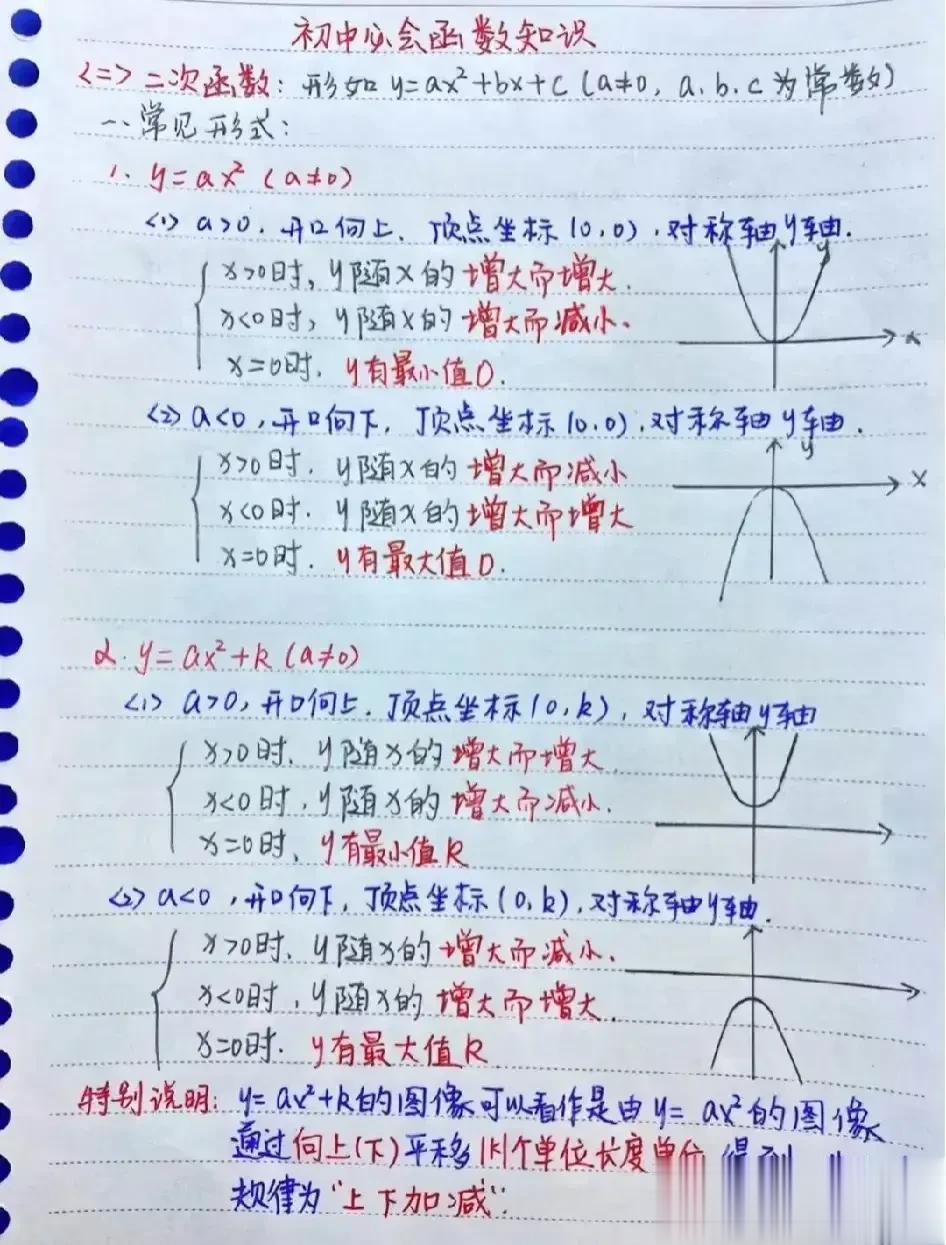 初中必会函数知识
<二> 二次函数：形如 y=ax²+bx+c (a≠0, a.b.c 为常数)
一、常见形式：
1. y=ax² (a≠0)
<1> a>0, 开口向上, 顶点坐标(0,0), 对称轴y轴.
x>0时, y随x的增大而增大.
y
x<0时, y随x的增大而减小.
x
x=0时, y有最小值0.
<2> a<0, 开口向下, 顶点坐标(0,0), 对称轴y轴.
y
x>0时, y随x的增大而减小
x
x<0时, y随x的增大而增大
x=0时, y有最大值0.
2. y=ax²+k (a≠0)
<1> a>0, 开口向上, 顶点坐标(0,k), 对称轴y轴
x>0时, y随x的增大而增大
x<0时, y随x的增大而减小.
x=0时, y有最小值k
<2> a<0, 开口向下, 顶点坐标(0,k), 对称轴y轴.
x>0时, y随x的增大而减小.
x<0时, y随x的增大而增大.
x=0时. y有最大值k
特别说明: y=ax²+k的图像可以看作是由y=ax²的图像
通过向上(下)平移|k|个单位长度单位 得到
规律为"上下加减".